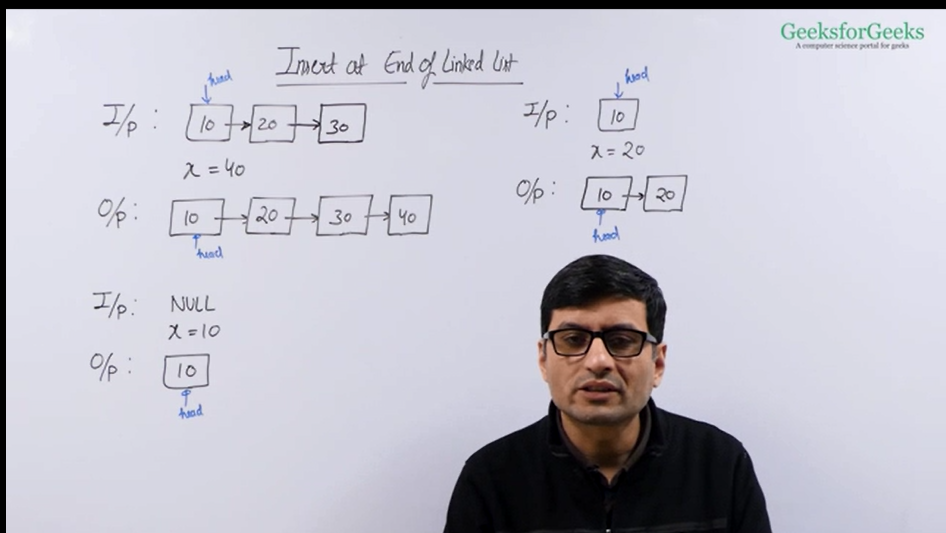 GeeksforGeeks
A computer science portal for geeks
Insert at End of Linked List
head
I/p : 10 → 20 → 30
x = 40
O/p : 10 → 20 → 30 → 40
head
I/p : NULL
x = 10
O/p : 10
head
head
I/p : 10
x = 20
O/p : 10 → 20
head